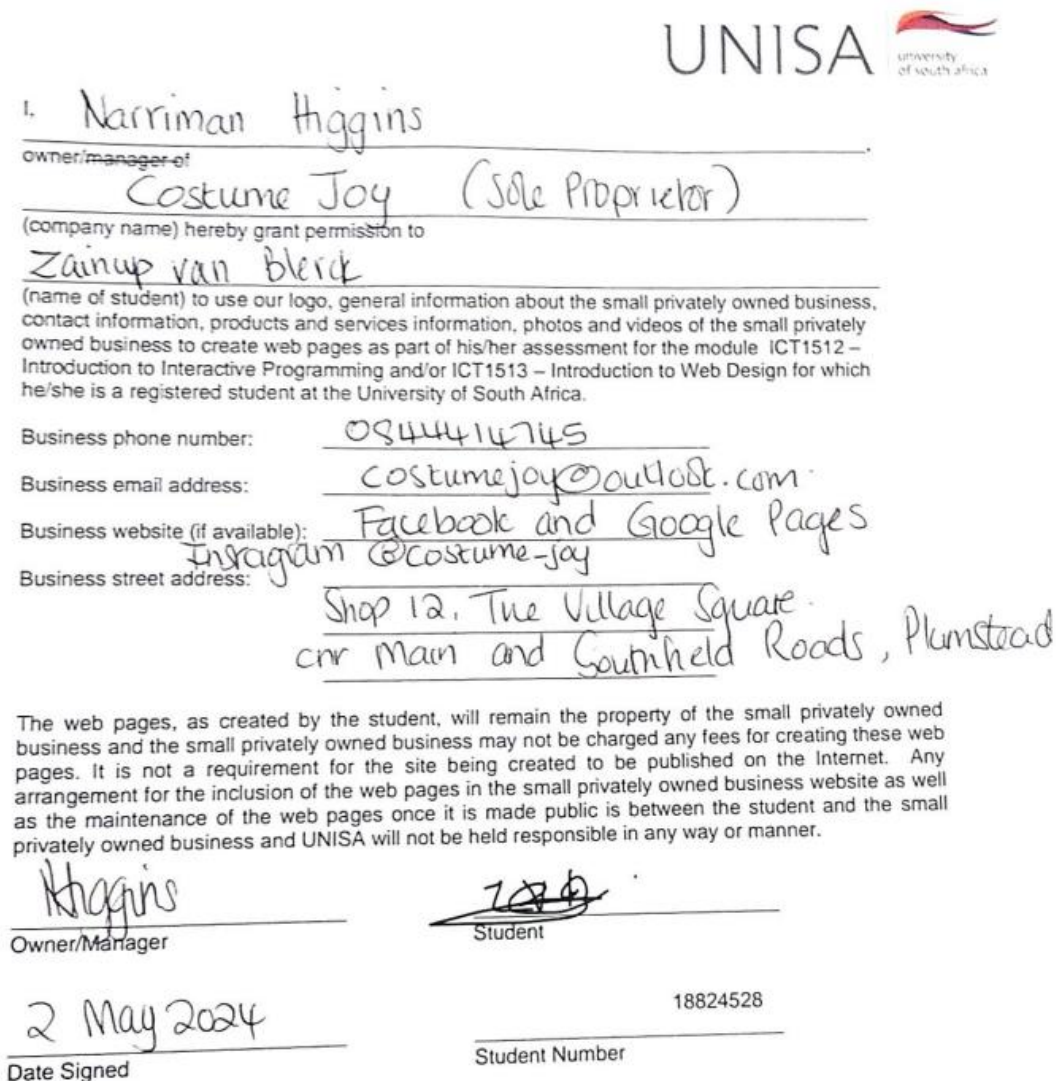 UNISA
university
of south africa
I, Narriman Higgins
owner/manager of
Costume Joy (Sole Proprietor)
(company name) hereby grant permission to
Zainup van Blerck
(name of student) to use our logo, general information about the small privately owned business,
contact information, products and services information, photos and videos of the small privately
owned business to create web pages as part of his/her assessment for the module ICT1512 –
Introduction to Interactive Programming and/or ICT1513 – Introduction to Web Design for which
he/she is a registered student at the University of South Africa.
Business phone number: 0844414745
Business email address: costumejoy@outlook.com
Business website (if available): Facebook and Google Pages
Insragram @costume-joy
Business street address:
Shop 12, The Village Square.
cnr Main and Southfield Roads, Plumstead
The web pages, as created by the student, will remain the property of the small privately owned
business and the small privately owned business may not be charged any fees for creating these web
pages. It is not a requirement for the site being created to be published on the Internet. Any
arrangement for the inclusion of the web pages in the small privately owned business website as well
as the maintenance of the web pages once it is made public is between the student and the small
privately owned business and UNISA will not be held responsible in any way or manner.
NHiggins
Owner/Manager
Student
2 May 2024
18824528
Date Signed
Student Number